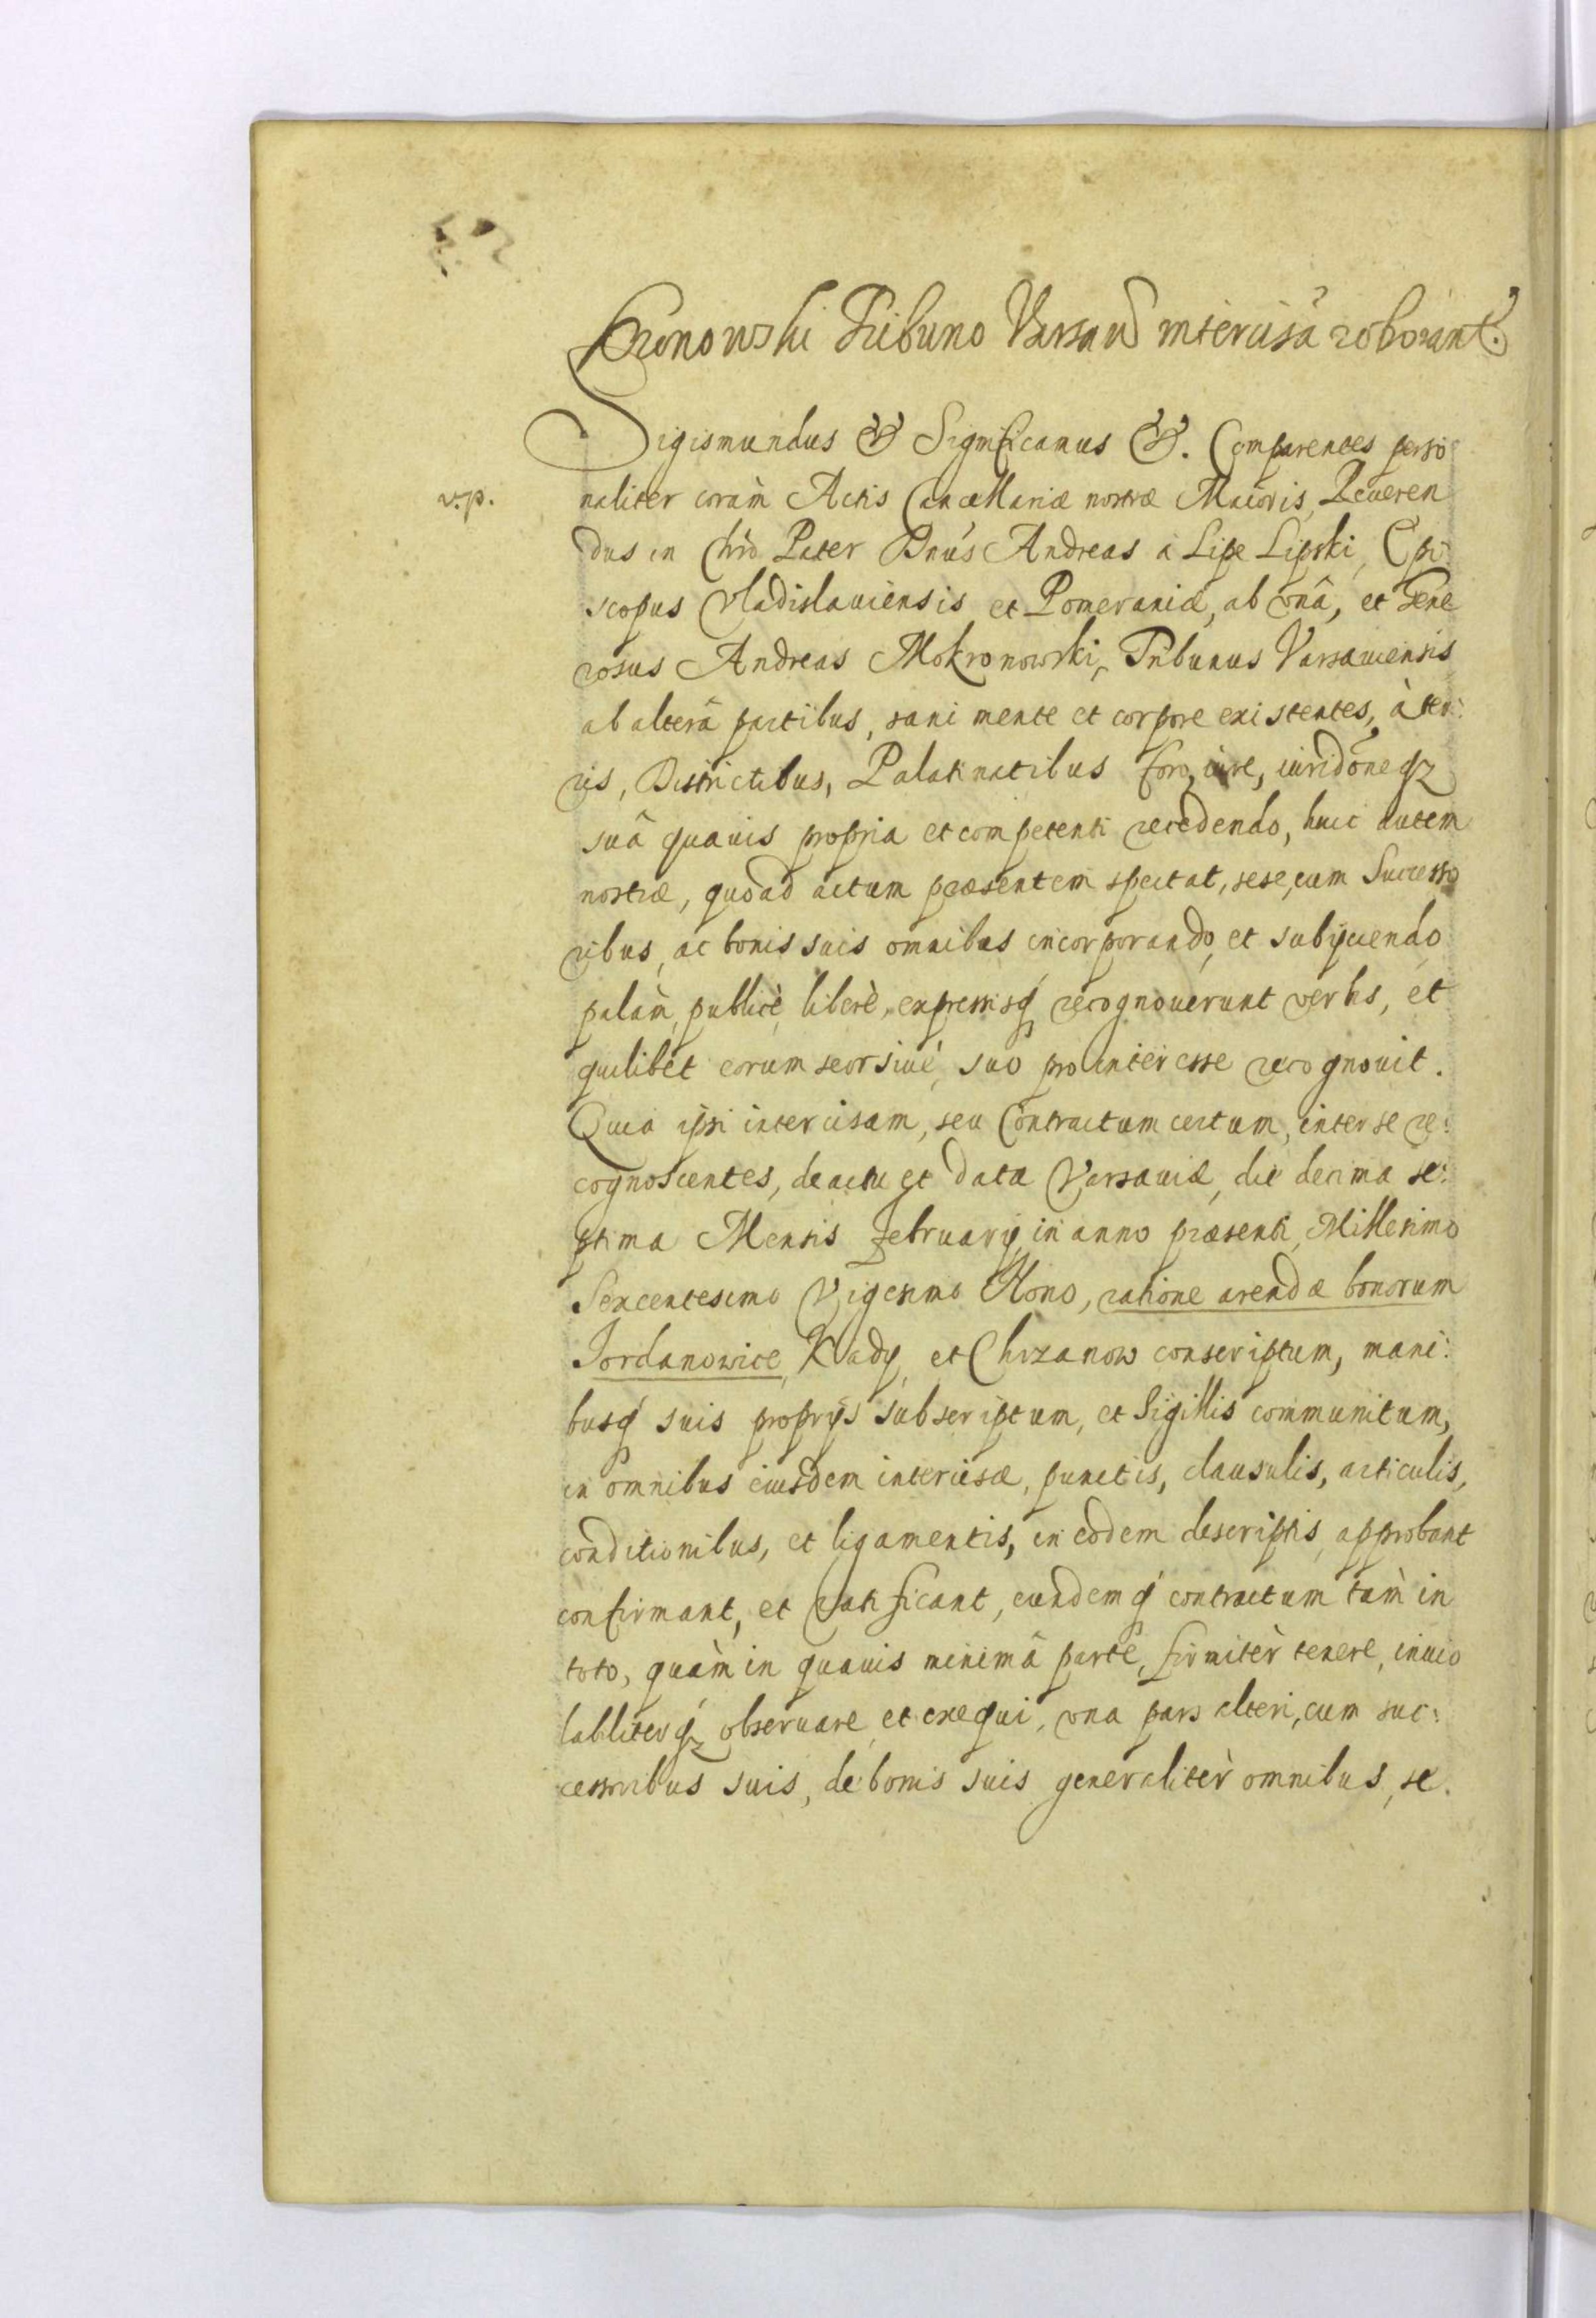 kronowski Tribuno Varsaw intercisã roborant.
Sigismundus & Significamus &. Comparentes perso
v.p. naliter coràm Actis Cancellariæ nostræ Maioris, Reueren
dus in Chrō Pater Dnūs Andreas à Lipe Lipski, Epi
scopus Vladislauiensis et Pomeraniæ, ab vnâ, et Gene
rosus Andreas Mokronowski, Tribunus Varsauiensis
ab alterâ partibus, sani mente et corpore existentes, à ter:
ris, Districtibus, Palatinatibus foro, iure, iuridōneqz
suâ quauis propria et competenti recedendo, huic autem
nostræ, quoad actum præsentem spectat, sese, cum Successo
ribus, ac bonis suis omnibus incorporando, et subijciendo
palàm, publicè, liberè, expressisq recognouerunt verbis, et
quilibet eorum seorsiuè, suo pro interesse recognouit.
Quia ipsi intercisam, seu Contractum certum, inter se re:
cognoscentes, de actu et data Varsauiæ, die decima se:
ptima Mensis Februarij, in anno præsenti, Millesimo
Sexcentesimo Vigesimo Nono, ratione arendæ bonorum
Jordanowice, Kady, et Chrzanow conscriptum, mani:
busq suis proprijs subscriptum, et Sigillis communitum,
in omnibus eiusdem intercisæ, punctis, clausulis, articulis,
conditionibus, et ligamentis, in eodem descriptis, approbant
confirmant, et ratificant, eundemq contractum tàm in
toto, quàm in quauis minimâ parte, firmitèr tenere, inuio
labliterqz obseruare et exequi, vna pars alteri, cum suc:
cessoribus suis, de bonis suis generalitèr omnibus, se.